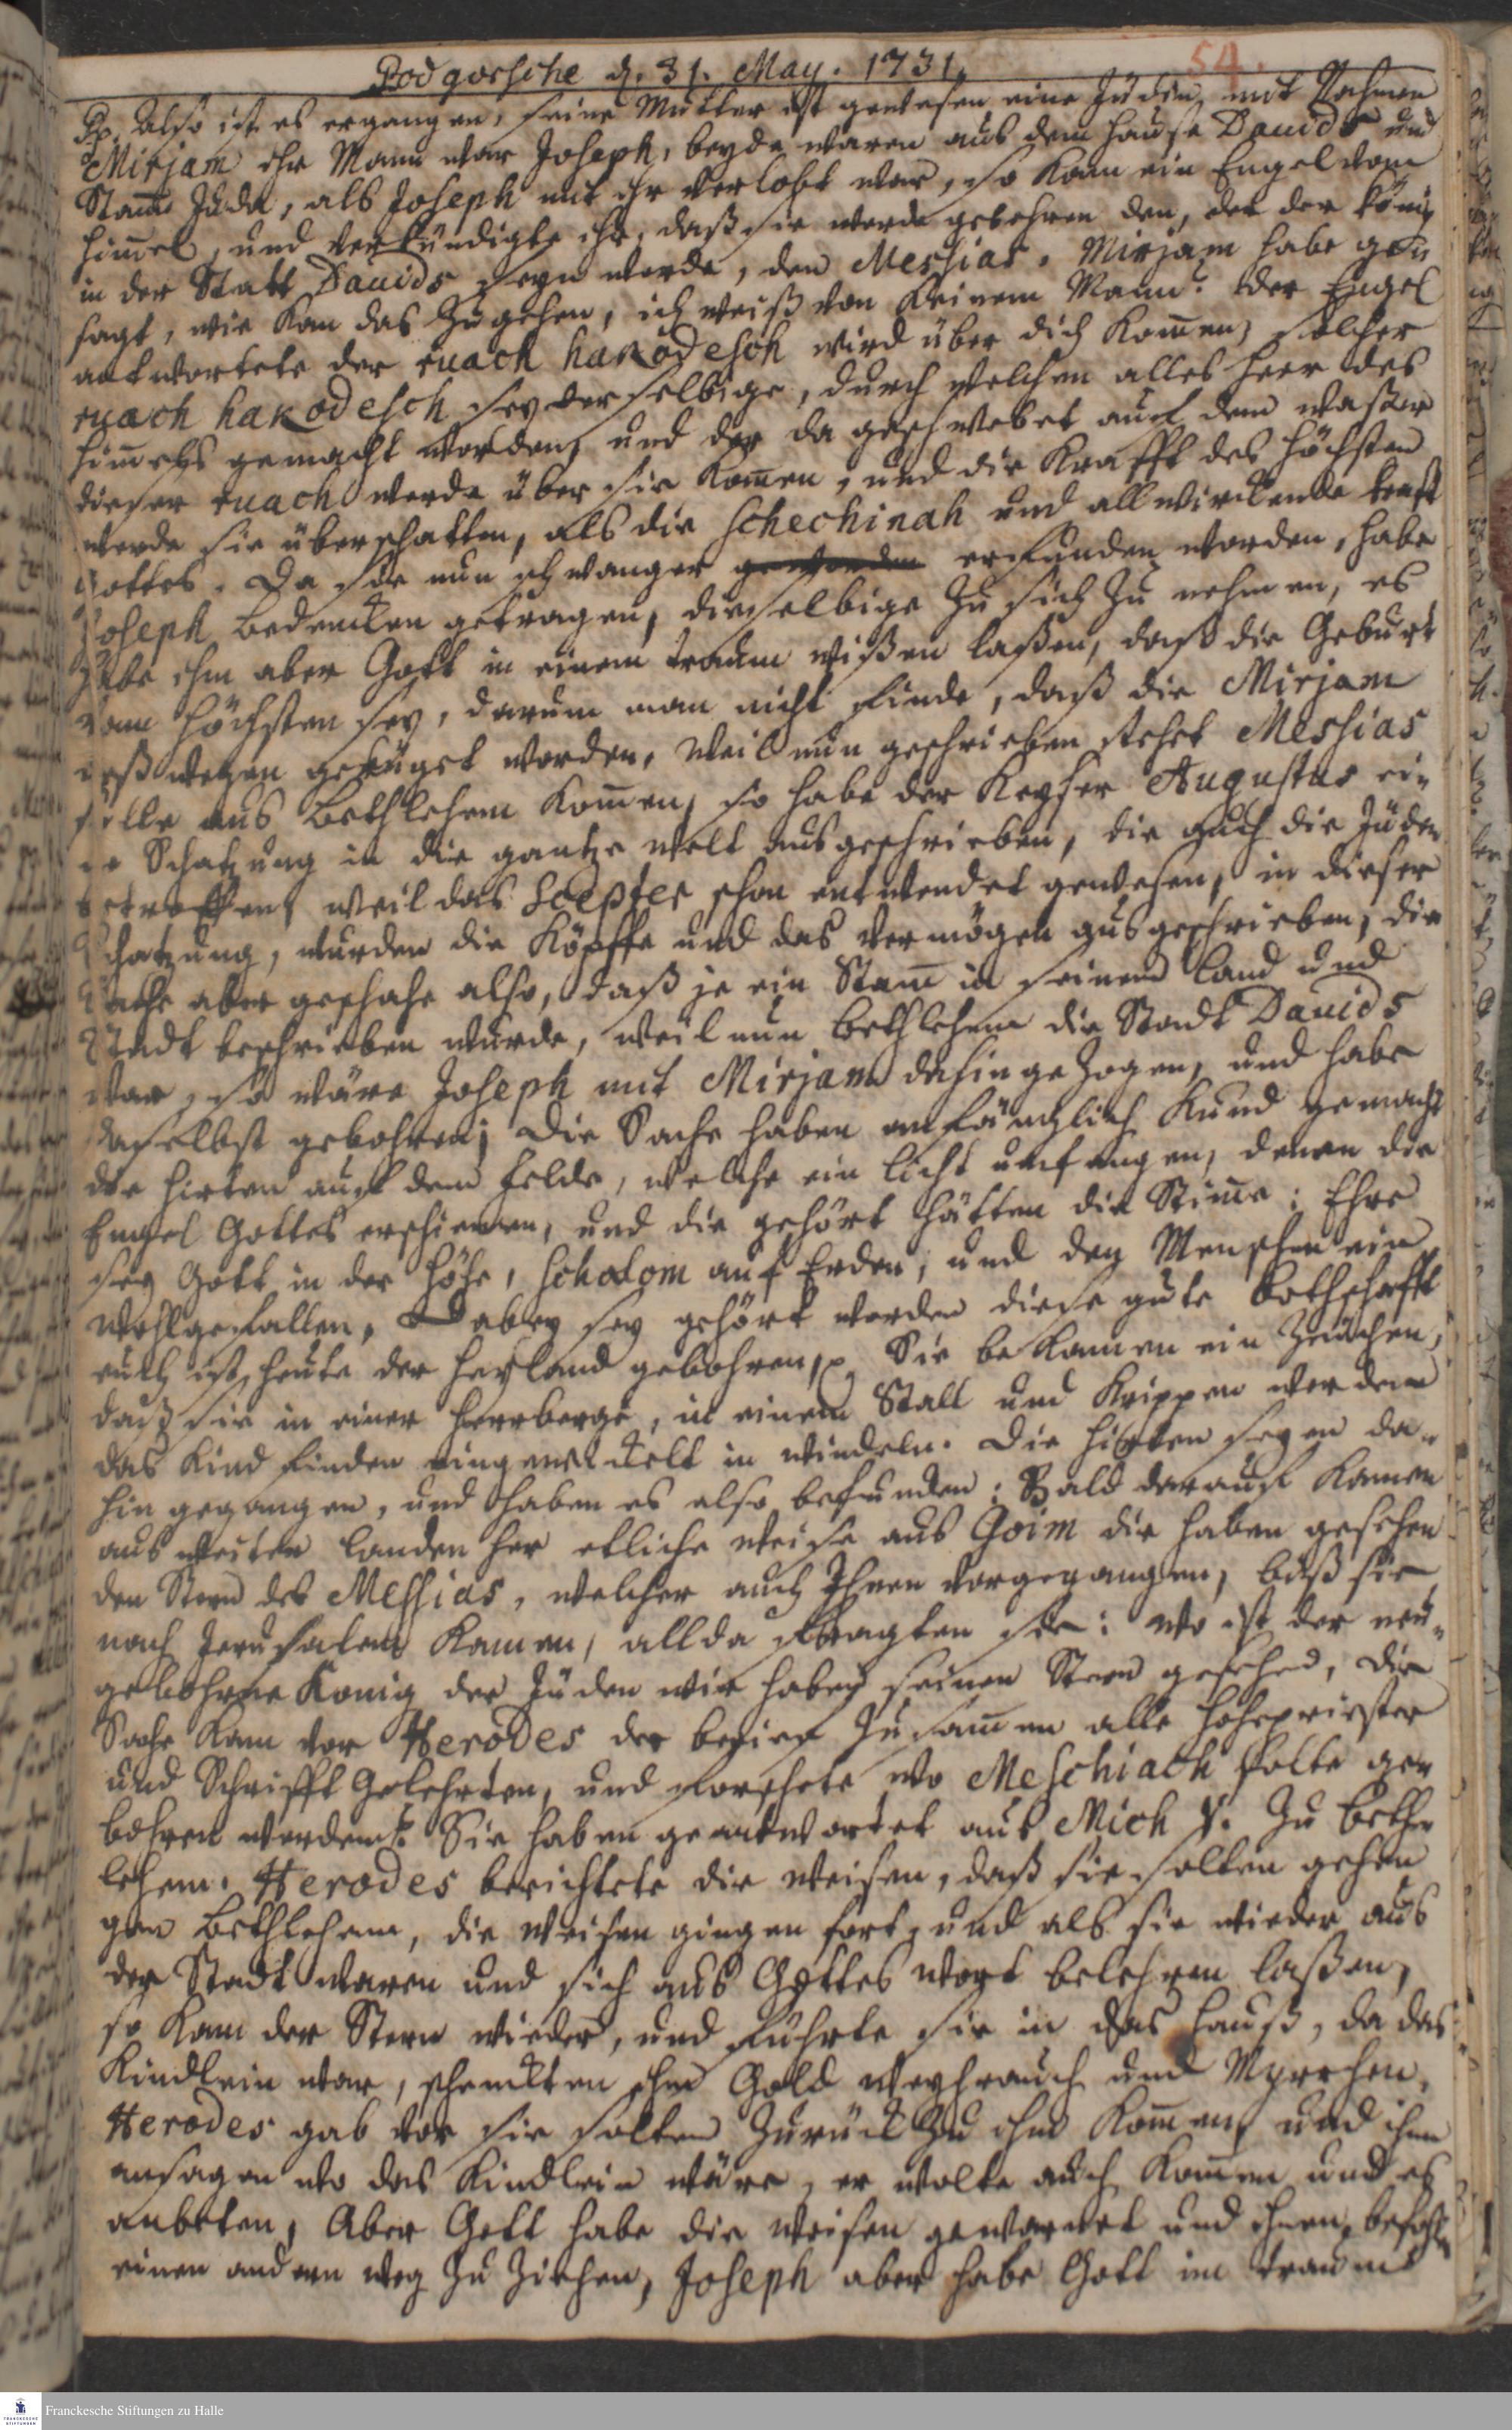 Podgorsche d. 31. May. 1731.
54.
Rp. Also ist es ergangen, seine Mutter ist gewesen eine Jüdin, mit Nahmen
Mirjam ihr Mann war Joseph, beyde waren aus dem Hause Davids und
Stam̄ Juda, als Joseph mit ihr verlobt war, so kam ein Engel vom
Him̄el, und verkündigte ihr, daß sie werde gebähren den, der der König
in der Statt Davids seyn werde, den Messias. Mirjam habe ge-
sagt, wie kan das zugehen, ich weiß von keinem Mann? der Engel
antwortete der ruach hakodesch wird über dich kom̄en, solcher
ruach hakodesch sey derselbige, durch welchen alles Heer des
Him̄els gemacht worden, und der da geschwebet auf dem Waßer
dieser ruach werde über sie kom̄en, und die Krafft des Höchsten
werde sie überschatten, als die Schechinah und allwirckende Krafft
Gottes. Da sie nun schwanger geworden erfunden worden, habe
Joseph Bedencken getragen, dieselbige zu sich zu nehmen, es
habe ihm aber Gott in einem Traum wißen laßen, daß die Geburt
vom Höchsten sey, darum man nicht finde, daß die Mirjam
deßwegen gesteiniget worden, Weil nun geschrieben stehet Messias
solle aus Bethlehem kom̄en, so habe der Keyser Augustus ei-
ne Schatzung in die gantze Welt ausgeschrieben, die auch die Jüden
betroffen, weil das Scepter schon entwendet gewesen, in dieser
Schatzung, wurden die Köpffe und das Vermögen aufgeschrieben, die
Sache aber geschahe also, daß je ein Stam̄ in seinem Land und
Stadt beschrieben wurde, weil nun Bethlehem die Stadt Davids
war, so wäre Joseph mit Mirjam dahin gezogen, und habe
daselbst gebohren; Die Sache haben anfänglich kund gemacht
die Hirten auf dem Felde, welche ein Licht umfangen, denen die
Engel Gottes erschienen, und die gehört hätten die Stim̄e: Ehre
sey Gott in der Höhe, Scholom auf Erden, und den Menschen ein
Wohlgefallen, Dabey sey gehört worden diese gute Bothschafft
euch ist heute der Heyland gebohren, p. Sie bekamen ein Zeichen,
daß sie in einer Herrberge, in einem Stall und Krippen werden
das Kind finden eingewickelt in Windeln. Die Hirten seyen da-
hin gegangen, und haben es also befunden: Bald darauf kamen
aus weiten Landen her etliche Weise aus Goim die haben gesehen
den Stern des Messias, welcher auch Ihnen vorgegangen, biß sie
nach Jerusalem kamen, allda fragten sie: Wo ist der neu-
gebohrne König der Jüden wir haben seinen Stern gesehen, Die
Sache kam vor Herodes der berief zusam̄en alle Hohepriester
und Schrifft Gelehrten, und forschete wo Meschiach solte ge-
bohren werden? Sie haben geantwortet aus Mich. V. Zu Bethe-
lehem. Herodes berichtete die Weisen, daß sie solten gehen
gen Bethlehem, die Weisen gingen fort, und als sie wieder aus
der Stadt waren und sich aus Gottes Wort belehren laßen,
so kam der Stern wieder, und führte sie in das Hauß, da das
Kindlein war, schenckten ihm Gold Weyhrauch und Myrrhen,
Herodes gab vor sie solten zurück zu ihm kom̄en, und ihm
ansagen wo das Kindlein wäre, er wolte auch kom̄en und es
anbeten, Aber Gott habe die Weisen gewarnet und ihnen befohlen
einen andern Weg zu ziehen, Joseph aber habe Gott im Traume
Franckesche Stiftungen zu Halle